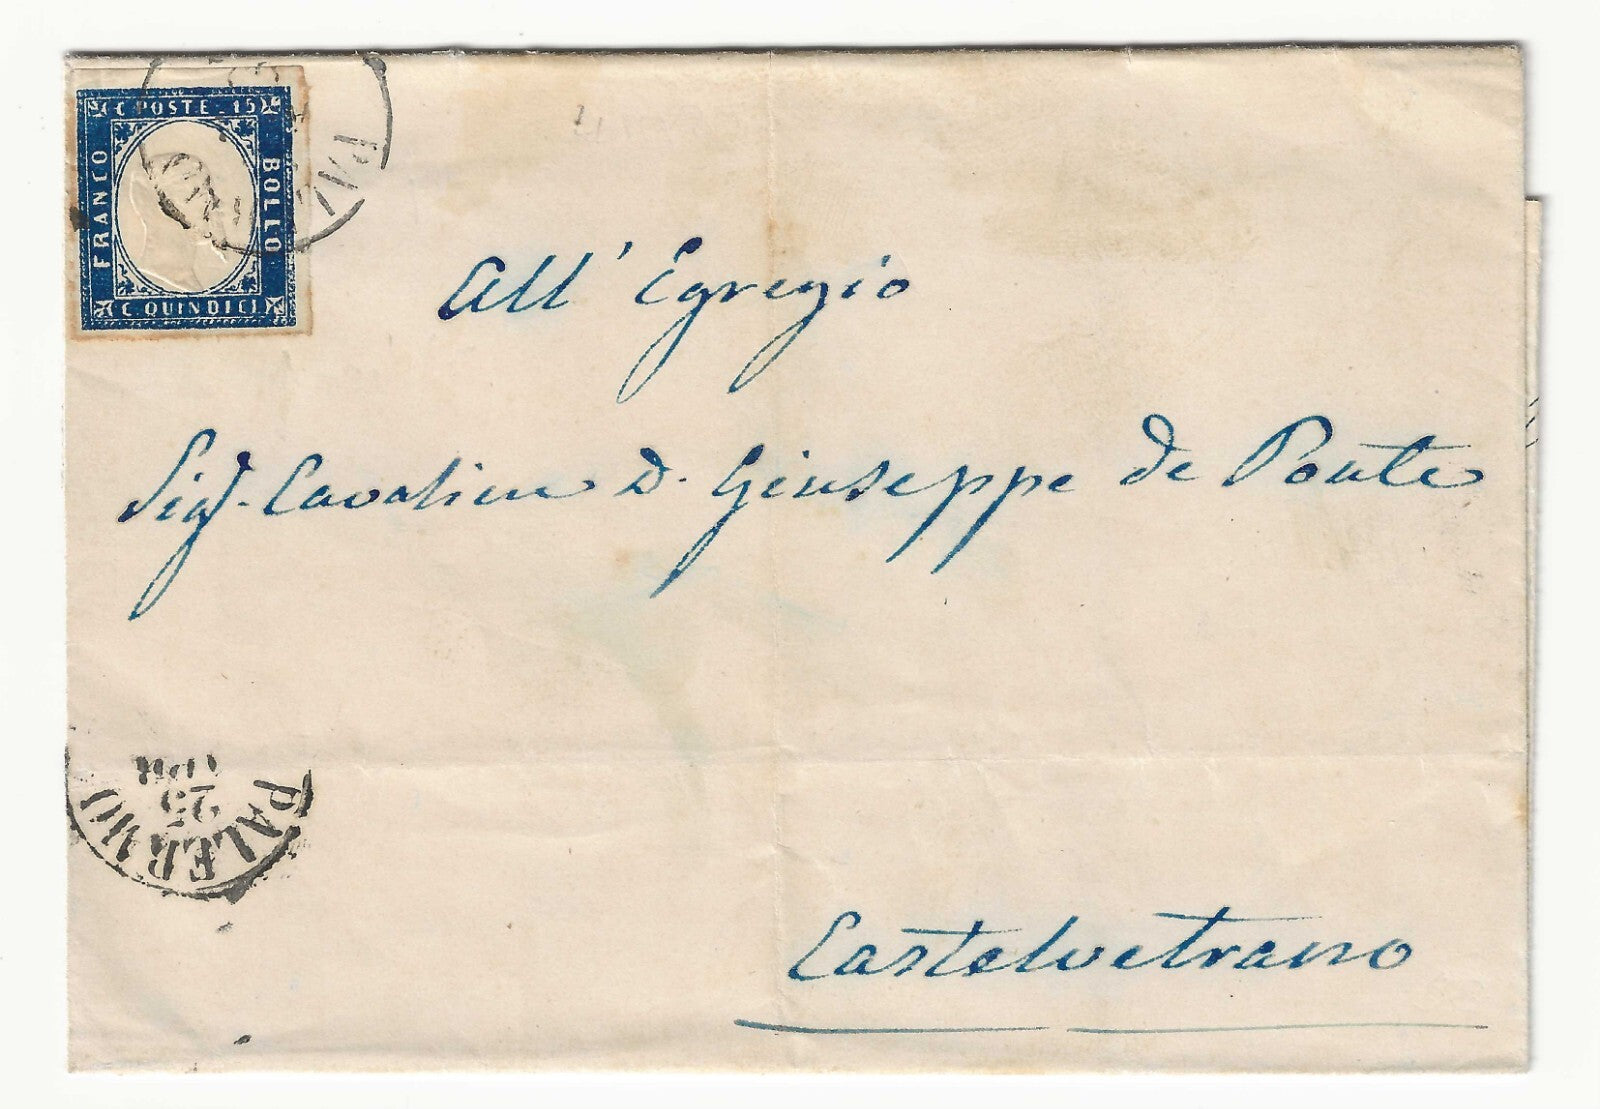 C POSTE . 15
FRANCO
BOLLO
C QUINDICI
All' Egregio
Sigr. Cavaliere D. Giuseppe de Ponte
PALERMO
25
APR
Castelvetrano